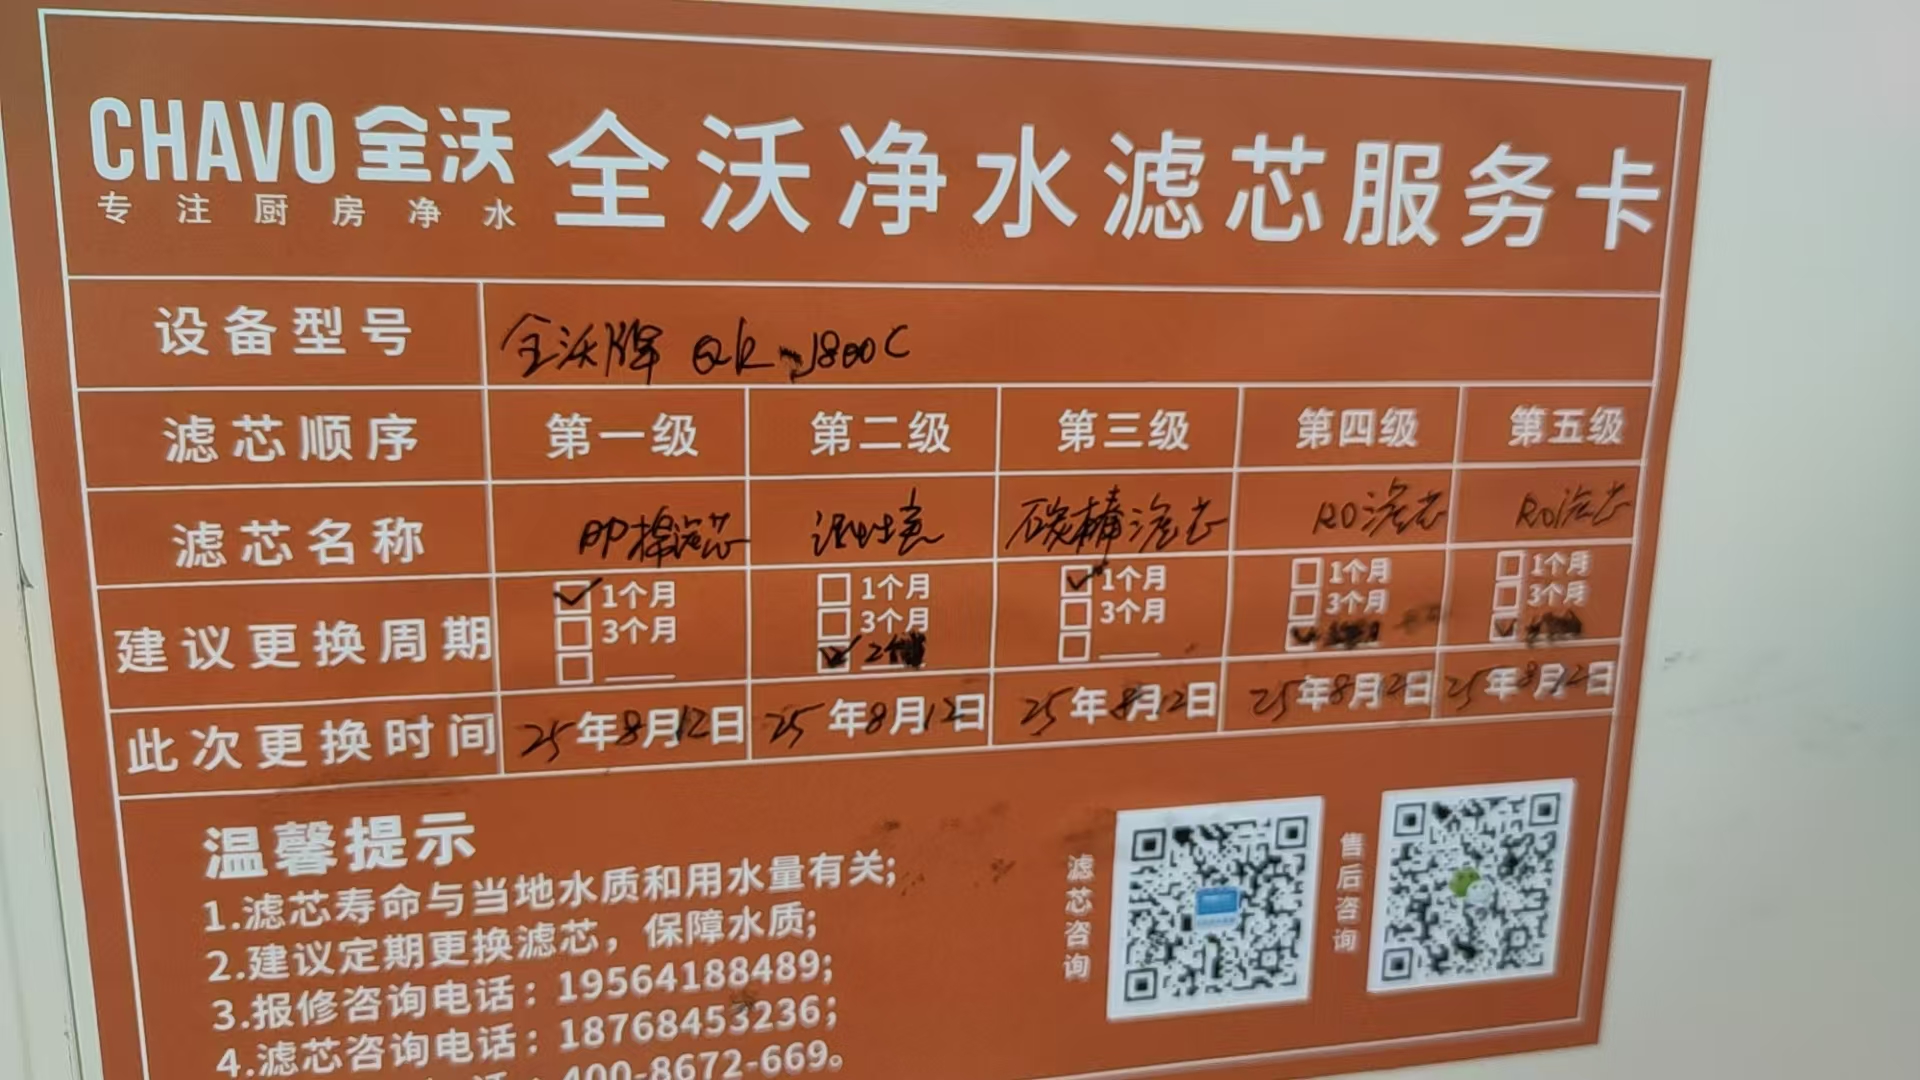 CHAVO 全沃
专注厨房净水
全沃净水滤芯服务卡
设备型号 全沃牌 QR-J800C
滤芯顺序 第一级 第二级 第三级 第四级 第五级
滤芯名称 PP棉滤芯 活性炭 碳棒滤芯 RO滤芯 RO滤芯
建议更换周期
1个月 1个月 1个月 1个月 1个月
3个月 3个月 3个月 3个月 3个月
此次更换时间 25年8月12日 25年8月12日 25年8月12日 25年8月12日 25年8月12日
温馨提示
1.滤芯寿命与当地水质和用水量有关;
2.建议定期更换滤芯，保障水质;
3.报修咨询电话：19564188489;
4.滤芯咨询电话：18768453236;
400-8672-669。
滤芯咨询
售后咨询